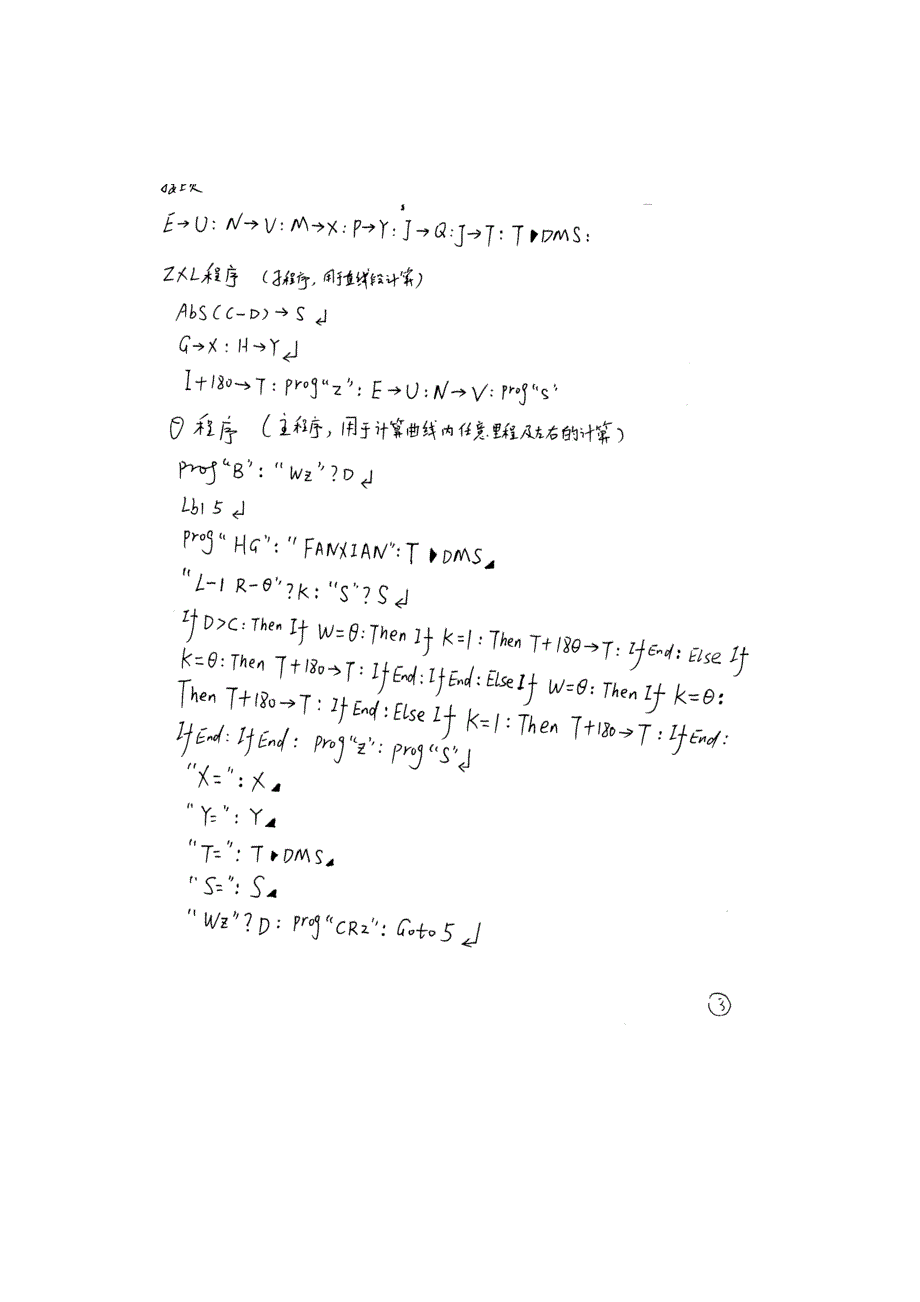 E→U: N→V: M→X: P→Y: J→Q: J→T: T▶DMS:
ZXL程序 (子程序,用于直线段计算)
Abs(C-D)→S↲
G→X: H→Y↲
I+180→T: prog“Z”: E→U: N→V: prog“S”
θ程序 (主程序,用于计算曲线内任意里程及左右的计算)
prog“B”: “WZ”?D↲
Lbl 5↲
prog“HG”: “FANXIAN”: T▶DMS◢
“L-1 R-θ”?K: “S”?S↲
If D>C: Then If W=θ: Then If K=1: Then T+18θ→T: IfEnd: Else If
K=θ: Then T+180→T: IfEnd: IfEnd: Else If W=θ: Then If K=θ:
Then T+180→T: IfEnd: Else If K=1: Then T+180→T: IfEnd:
IfEnd: IfEnd: prog“Z”: prog“S”↲
“X=”: X◢
“Y=”: Y◢
“T=”: T▶DMS◢
“S=”: S◢
“WZ”?D: prog“CRZ”: Goto 5↲
③